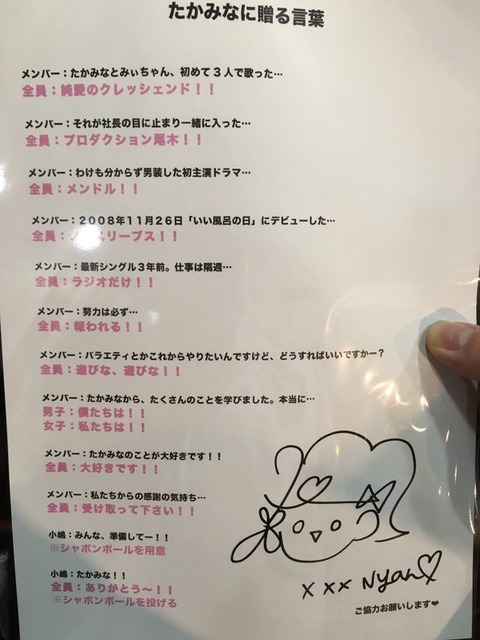 たかみなに贈る言葉
メンバー：たかみなとみぃちゃん、初めて3人で歌った…
全員：純愛のクレッシェンド！！
メンバー：それが社長の目に止まり一緒に入った…
全員：プロダクション尾木！！
メンバー：わけも分からず男装した初主演ドラマ…
全員：メンドル！！
メンバー：2008年11月26日「いい風呂の日」にデビューした…
全員：ノースリーブス！！
メンバー：最新シングル3年前。仕事は隔週…
全員：ラジオだけ！！
メンバー：努力は必ず…
全員：報われる！！
メンバー：バラエティとかこれからやりたいんですけど、どうすればいいですかー？
全員：遊びな、遊びな！！
メンバー：たかみなから、たくさんのことを学びました。本当に…
男子：僕たちは！！
女子：私たちは！！
メンバー：たかみなのことが大好きです！！
全員：大好きです！！
メンバー：私たちからの感謝の気持ち…
全員：受け取って下さい！！
小嶋：みんな、準備してー！！
※シャボンボールを用意
小嶋：たかみな！！
全員：ありがとう〜！！
※シャボンボールを投げる
xxx Nyan♡
ご協力お願いします❤